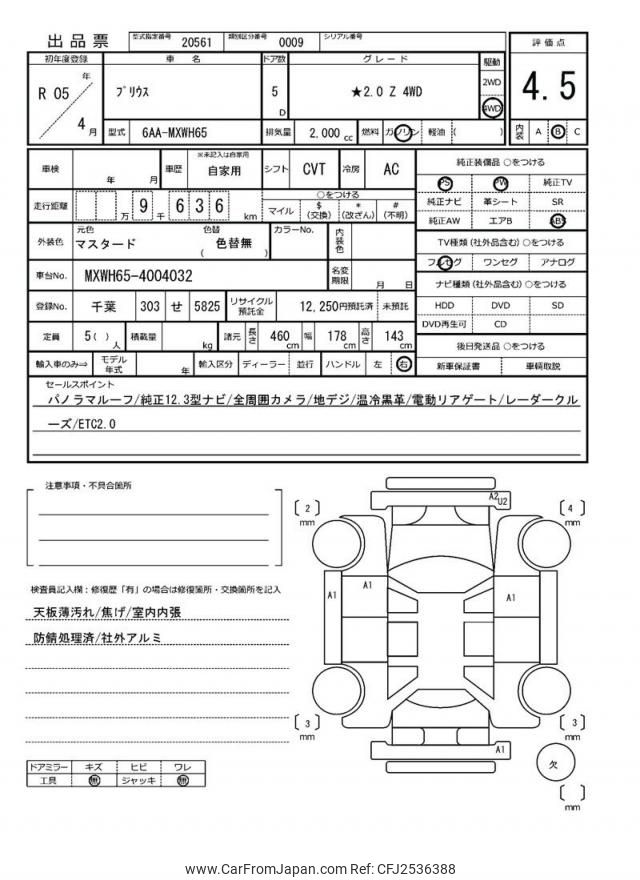 出品票
型式指定番号 20561 類別区分番号 0009 シリアル番号
初年度登録 車名 ドア数 グレード 駆動 評価点
R 05 年 4 月
プリウス
5 D
★2.0 Z 4WD
2WD
4WD
4.5
型式 6AA-MXWH65 排気量 2,000 cc 燃料 ガソリン 軽油 ( )
内装 A B C
車検 年 月 車歴 ※未記入は自家用 自家用 シフト CVT 冷房 AC
走行距離 万 9 千 6 3 6 km
○をつける
マイル $ (交換) * (改ざん) # (不明)
外装色 元色 マスタード 色替 色替無 ( ) カラーNo. 内装色
車台No. MXWH65-4004032 名変期限 月 日
登録No. 千葉 303 せ 5825 リサイクル預託金 12,250円預託済 未預託
定員 5( ) 人 積載量 kg 諸元 長さ 460 cm 幅 178 cm 高さ 143 cm
輸入車のみ⇒ モデル年式 年 輸入区分 ディーラー 並行 ハンドル 左 右
純正装備品 ○をつける
PS PW 純正TV
純正ナビ 革シート SR
純正AW エアB ABS
TV種類(社外品含む)○をつける
フルセグ ワンセグ アナログ
ナビ種類(社外品含む)○をつける
HDD DVD SD
DVD再生可 CD
後日発送品 ○をつける
新車保証書 車輌取説
セールスポイント
パノラマルーフ/純正12.3型ナビ/全周囲カメラ/地デジ/温冷黒革/電動リアゲート/レーダークル
ーズ/ETC2.0
注意事項・不具合箇所
検査員記入欄：修復歴「有」の場合は修復箇所・交換箇所を記入
天板薄汚れ/焦げ/室内内張
防錆処理済/社外アルミ
ドアミラー キズ ヒビ ワレ
工具 無 ジャッキ 無
[2] mm
[4] mm
A2 U2
A1
A1
A1
[3] mm
[3] mm
A1
欠
[ ] mm
www.CarFromJapan.com Ref: CFJ2536388